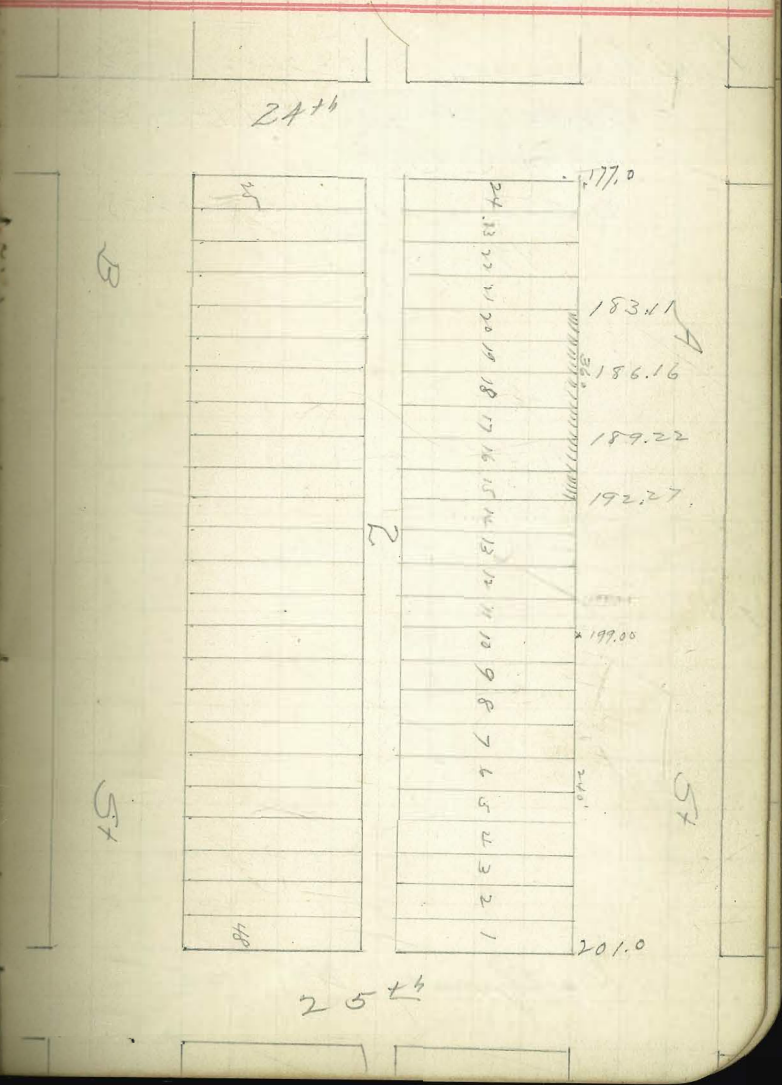 24th
25
24
23
22
21
20
19
18
17
16
15
14
13
12
11
10
9
8
7
6
5
4
3
2
1
48
177.0
183.11
36°
186.16
189.22
192.27.
199.00
240'
201.0
A
St
B
St
2
25th